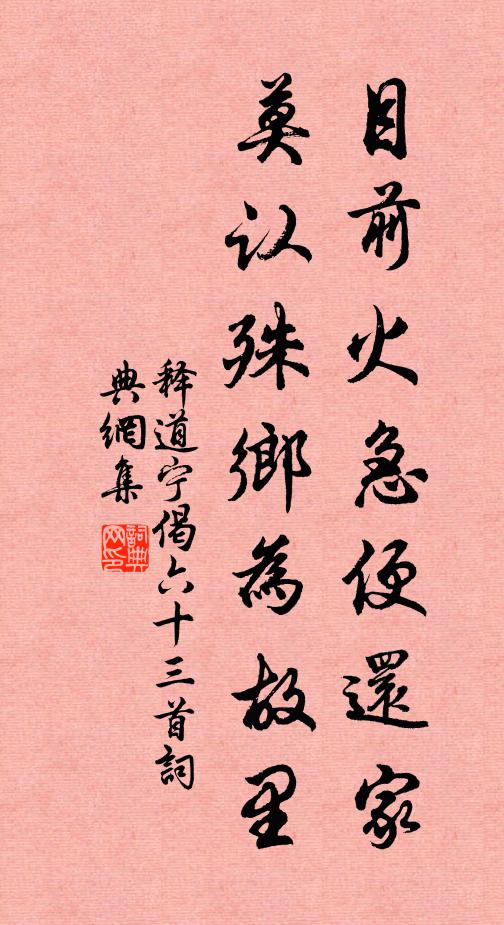 目前火急便還家
莫认殊鄉為故里
释道宁偈六十三首詞
典網集
詞典
网印